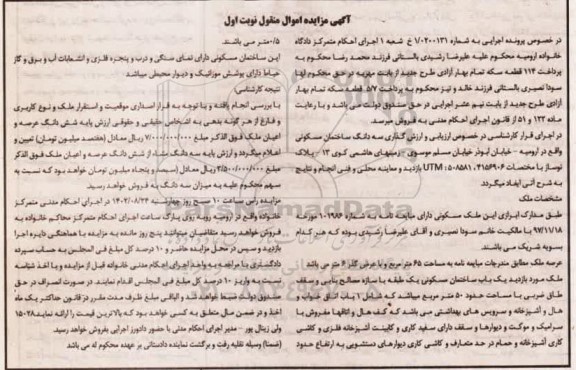 آگهی مزایده اموال منقول نوبت اول
در خصوص پرونده اجرایی به شماره ۱/۰۲۰۰۱۳۱ خ شعبه ۱ اجرای احکام متمرکز دادگاه
خانواده ارومیه محکوم علیه علیرضا رشیدی بالستانی فرزند محمد رضا محکوم به
پرداخت ۱۱۴ قطعه سکه تمام بهار آزادی طرح جدید از بابت مهریه در حق محکوم لها
سودا نصیری بالستانی فرزند خالد و نیز محکوم به پرداخت ۵/۷ قطعه سکه تمام بهار
آزادی طرح جدید از بابت نیم عشر اجرایی در حق صندوق دولت می باشد و با رعایت
ماده ۱۲۲ و ۵۱ از قانون اجرای احکام مدنی به فروش میرسد.
در اجرای قرار کارشناسی در خصوص ارزیابی و ارزش گذاری سه دانگ ساختمان مسکونی
واقع در ارومیه - خیابان ابوذر خیابان مسلم موسوی - میثمهای هاشمی کوی ۱۳ - پلاک
نوساز با مختصات ۴۱۵۶۹۰۶ ، ۵۰۸۵۸۱ : UTM بازدید و معاینه محلی و فنی انجام و نتایج
به شرح آتی ایفاد میگردد
مشخصات ملک
طبق مدارک ابرازی این ملک مسکونی دارای مبایعه نامه به شماره ۱۰۱۹۸۶ مورخه
۹۷/۱۱/۱۸ با مالکیت خانم سودا نصیری و آقای علیرضا رشیدی بوده که هنر کدام
بسویه شریک می باشند
عرصه ملک مطابق مندرجات مبایعه نامه به مساحت ۶۵ متر مربع و با عرض گذر ۶ متر می باشد
ملک مورد بازدید یک باب ساختمان مسکونی یک طبقه با سازه مصالح بنایی و سقف
طاق ضربی با مساحت حدود ۵۰ متر مربع میباشد که شامل ۱ باب اتاق خواب و
هال و آشپزخانه و سرویس های بهداشتی می باشد که کف هال و اتاقها مفروش با
سرامیک و موکت و دیوارها و سقف دارای سفید کاری و کابینت آشپزخانه فلزی و کاشی
کاری آشپزخانه و حمام در حد متعارف و کاشی کاری دیوارهای دستشویی به ارتفاع حدود
۰/۵ متر می باشند
این ساختمان مسکونی دارای نمای سنگی و درب و پنجره فلزی و انشعابات آب و برق و گاز
حیاط دارای پوشش موزائیک و دیوار محیطی میباشد
نتیجه کارشناسی:
با بررسی انجام یافته و با توجه به قرار اصداری موقعیت و استقرار ملک و نوع کاربری
و فارغ از هر گونه بدهی به اشخاص حقیقی و حقوقی ارزش پایه شش دانگ عرصه و
اعیان ملک فوق الذکر مبلغ ۷/۰۰۰/۰۰۰/۰۰۰ ریال معادل (هفتصد میلیون تومان) تعیین و
اعلام میگردد و ارزش پایه سه دانگ مشاء از شش دانگ عرصه و اعیان ملک فوق الذکر
مبلغ ۳/۵۰۰/۰۰۰/۰۰۰ ریال معادل (سیصد و پنجاه میلیون تومان خواهد بود که نسبت به
سهم محکوم علیه به میزان سه دانگ به فروش خواهد رسید.
مزایده رأس ساعت ۱۰ صبح روز چهارشنبه ۱۴۰۲/۰۸/۲۴ در اجرای احکام مدنی متمرکز
خانواده واقع در ارومیه روبه روی پارک ساعت اجرای احکام متمرکز محاکم خانواده به
فروش خواهد رسید متقاضیان میتوانند پنج روز مانده به مزایده با هماهنگی دایره اجرا
بازدید و سپس در محل مزایده حاضر و ۱۰ درصد کل مبلغ فی المجلس به حساب سپرده
دادگستری با مراجعه به واحد اجرای احکام مدنی خانواده قبل از مزایده و با اخذ شناسه
سپرده واریز ۱۰ درصد کل مبلغ فی المجلس اقدام نمایند. در صورت انصراف در حق
صندوق دولت ضبط خواهد شد و الباقی مبلغ ظرف مدت مقرر در قانون حداکثر یک ماه
اخذ و در ضمن مال متعلق به کسی خواهد بود که بالاترین قیمت را ارائه نماید ۱۵۰۲۸
ولی زینال پور - مدیر اجرای احکام مدنی با حضور دادورز اجرایی بفروش خواهد رسید.
(ضمنا) وسیله نقلیه رفت و برگشت نماینده دادستانی بر عهده محکوم له می باشد